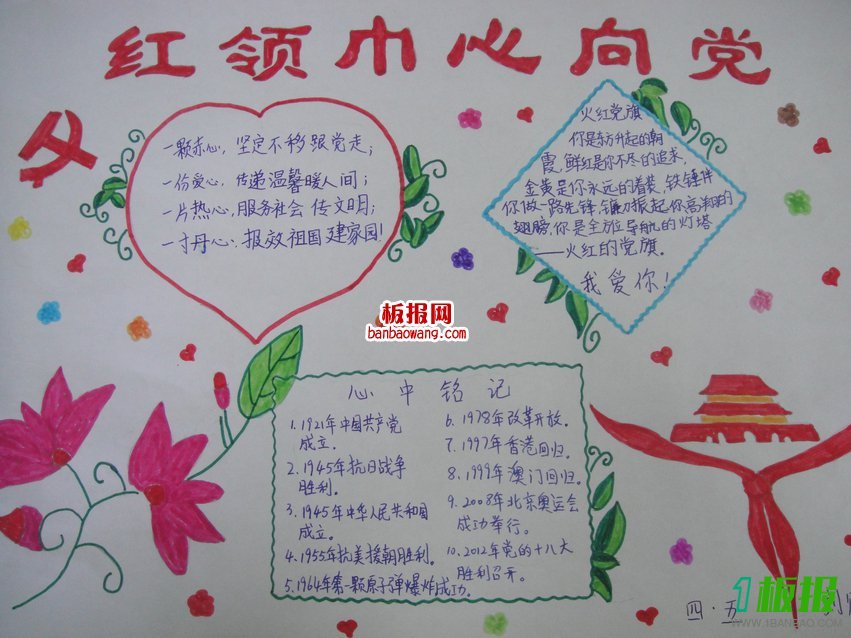 红领巾心向党
一颗赤心，坚定不移跟党走；
一份爱心，传递温馨暖人间；
一片热心，服务社会传文明；
一寸丹心，报效祖国建家园！
火红党旗
你是东方升起的朝
霞，鲜红是你不尽的追求，
金黄是你永远的着装，铁锤伴
你做一路先锋，镰刀振起你高翔的
翅膀，你是全方位导航的灯塔
——火红的党旗。
我爱你！
板报网
banbaowang.com
心中铭记
1.1921年中国共产党
成立．
2.1945年抗日战争
胜利。
3.1945年中华人民共和国
成立。
4.1955年抗美援朝胜利．
5.1964年第一颗原子弹爆炸成功．
6.1978年改革开放。
7.1997年香港回归。
8.1999年澳门回归。
9.2008年北京奥运会
成功举行。
10.2012年党的十八大
胜利召开。
四.五
1板报
WWW.1BANBAO.COM